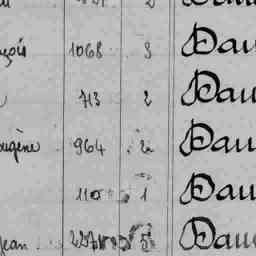 çois 1068 3 Dau
713 2 Dau
ugène 964 2 Dau
110 1 Dau
Jean 5 Dau